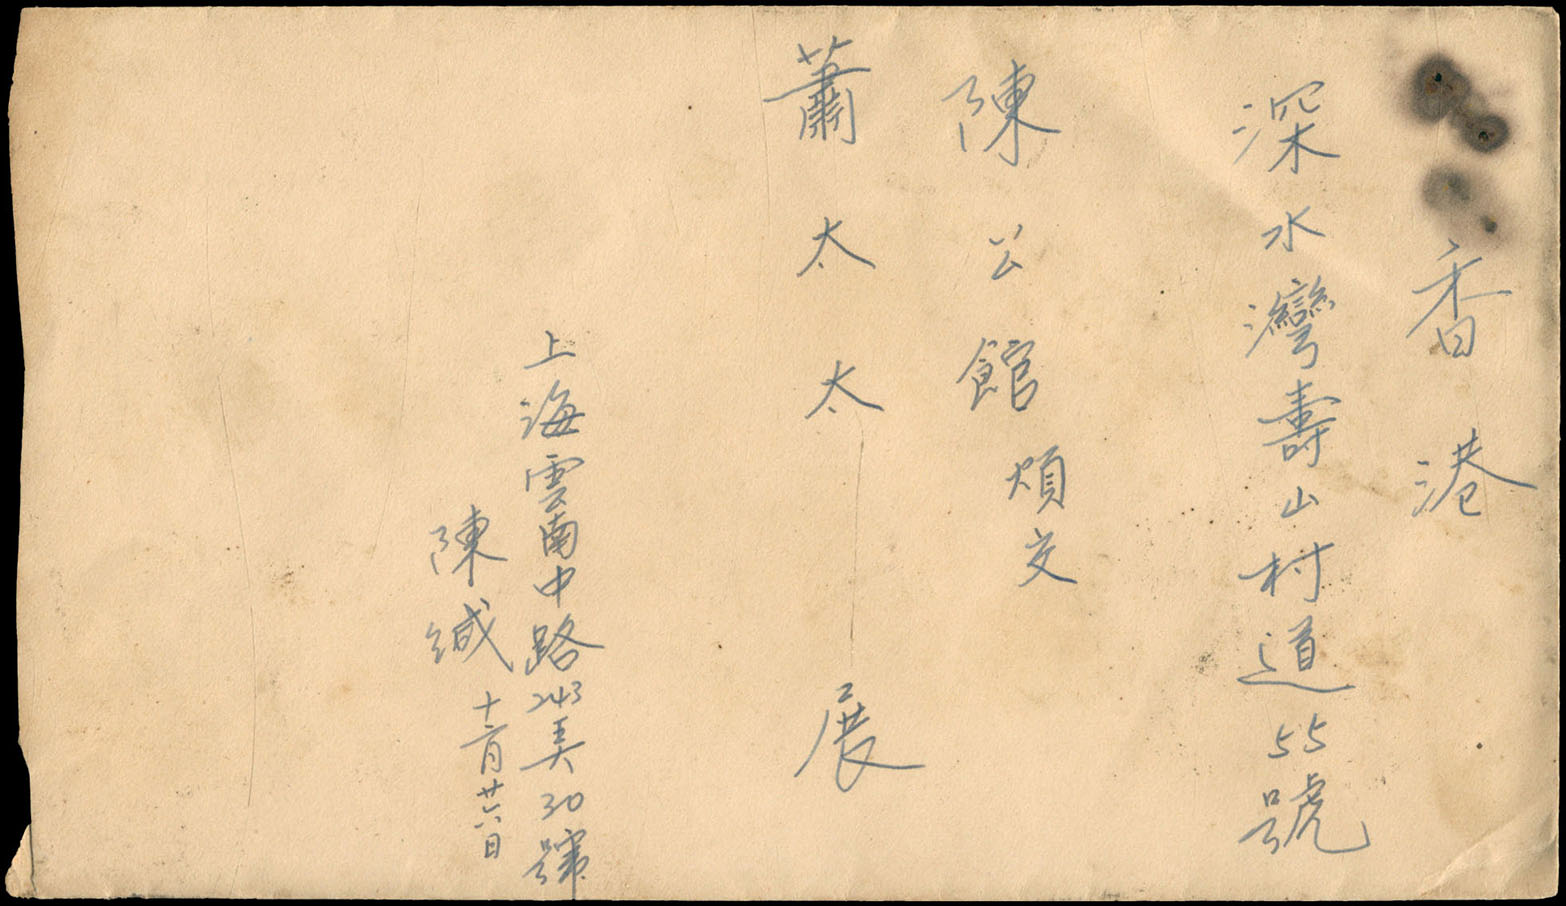 香港
深水灣壽山村道55號
陳公館煩交
蕭太太展
上海雲南中路243弄30號
陳緘
十二月廿六日